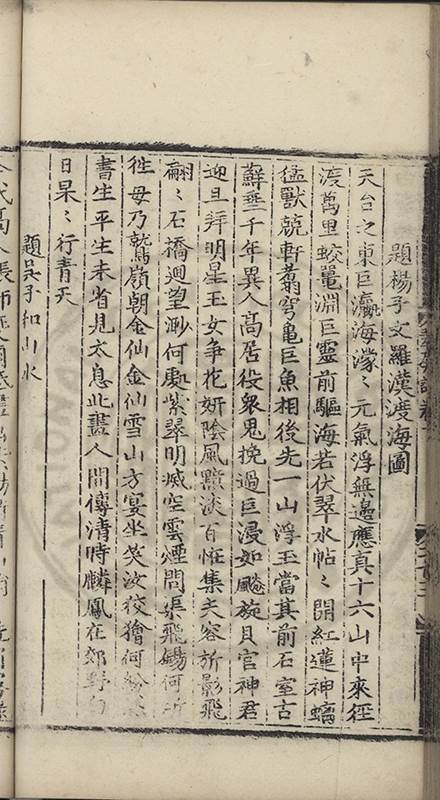 題楊子文羅漢渡海圖
天台之東巨瀛海濛〻元氣浮無邊應真十六山中來徑
渡萬里蛟鼉淵巨靈前驅海若伏翠水帖〻開紅蓮神螭
猛獸兢軒翥穹龜巨魚相後先一山浮玉當其前石室古
蘚垂千年異人高居役衆鬼挽過巨浸如飈旋貝宮神君
迎且拜明星玉女爭花妍陰風黪淡百恠集夫容旂影飛
翩〻石橋迴望渺何處紫翠明滅空雲煙問渠飛錫何所
徃毋乃鷲嶺朝金仙金仙雪山方宴坐笑汝狡獪何紛
書生平生未省見太息此畫人間傳清時麟鳳在郊野
日杲〻行青天
題吳子和山水